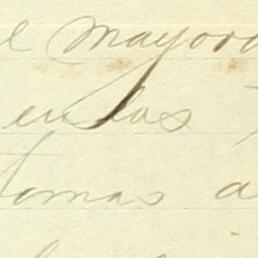 e mayord
en las
tomas a